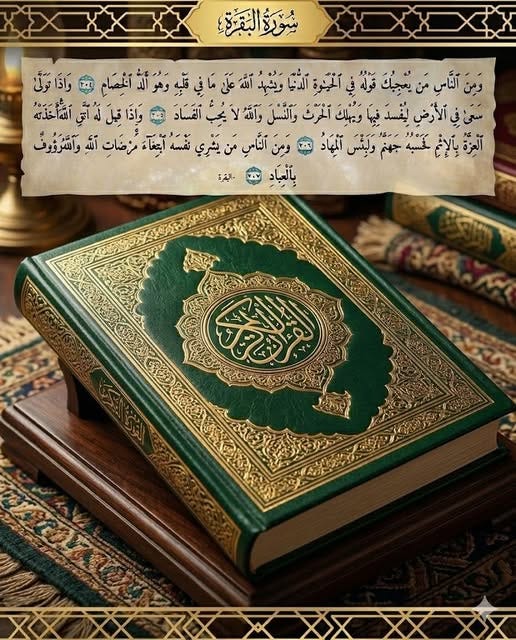 سُورَةُ البَقَرَةِ
وَمِنَ النَّاسِ مَن يُعْجِبُكَ قَوْلُهُ فِي الْحَيَوٰةِ الدُّنْيَا وَيُشْهِدُ اللَّهَ عَلَىٰ مَا فِي قَلْبِهِ وَهُوَ أَلَدُّ الْخِصَامِ ٢٠٤ وَإِذَا تَوَلَّىٰ
سَعَىٰ فِي الْأَرْضِ لِيُفْسِدَ فِيهَا وَيُهْلِكَ الْحَرْثَ وَالنَّسْلَ وَاللَّهُ لَا يُحِبُّ الْفَسَادَ ٢٠٥ وَإِذَا قِيلَ لَهُ اتَّقِ اللَّهَ أَخَذَتْهُ
الْعِزَّةُ بِالْإِثْمِ فَحَسْبُهُ جَهَنَّمُ وَلَبِئْسَ الْمِهَادُ ٢٠٦ وَمِنَ النَّاسِ مَن يَشْرِي نَفْسَهُ ابْتِغَاءَ مَرْضَاتِ اللَّهِ وَاللَّهُ رَءُوفٌ
بِالْعِبَادِ ٢٠٧ -البقرة
القرآن الكريم